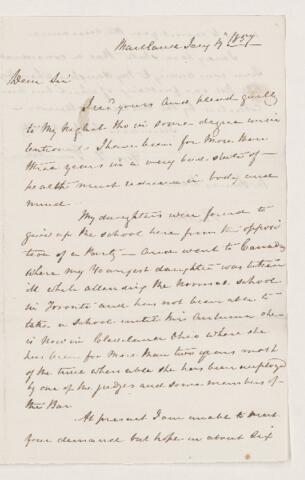 Jany 19th 1857
Dear Sir
I recd yours and plead guilty
to My neglect tho in some degree unin
tentional as I have been for More than
three years in a very bad state of
health much reduced in body and
mind.
My daughters were forced to
give up the school here from the opposi
tion of a Party — and went to Canada
where my Youngest daughter was taken
ill while attending the Normal School
in Toronto and has not been able to
take a School until this Autumn she
is Now in Cleveland Ohio where she
has been for More than two years most
of the time when able she has been employed
by one of the judges and some members of
the Bar
At present I am unable to meet
your demand but hope in about six